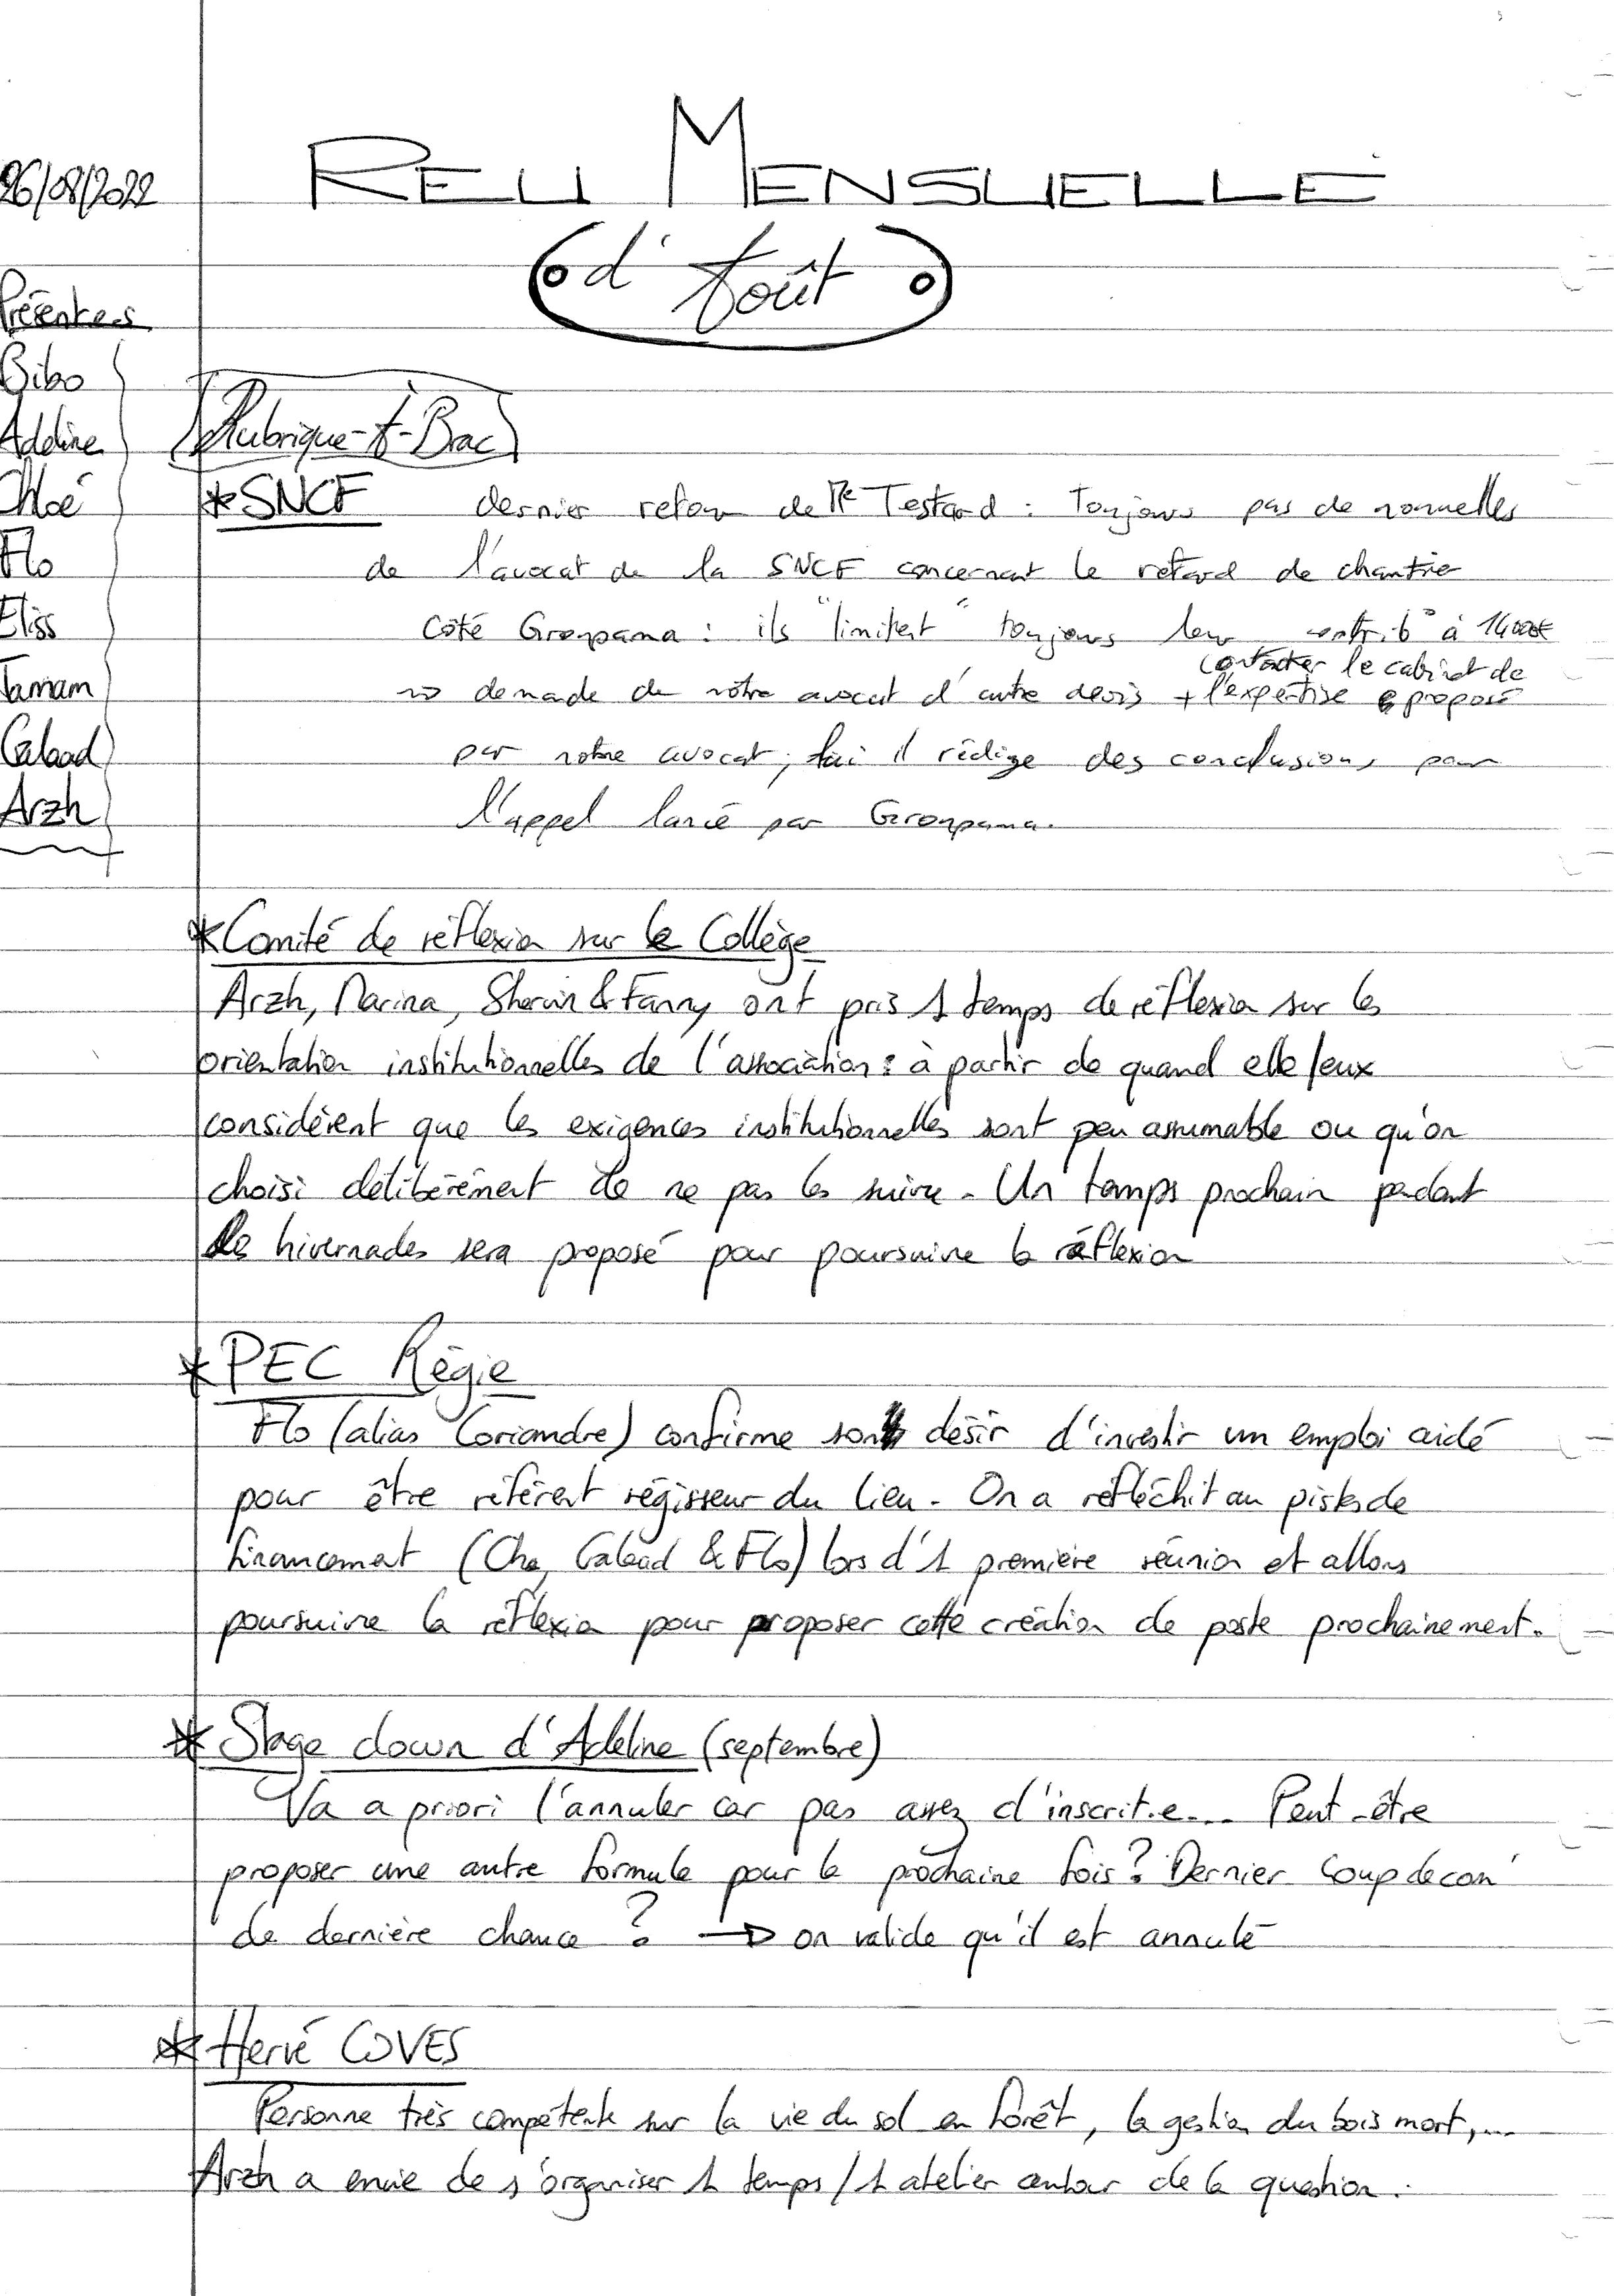 26/08/2022
REU MENSUELLE
(d'Août)
Présent.e.s
Bibo
Adeline
Chloé
Flo
Eliss
Tamam
Galaad
Arzh
Rubrique-à-Brac
* SNCF dernier retour de Me Testard : Toujours pas de nouvelles
de l'avocat de la SNCF concernant le retard de chantier
Côté Groupama : ils "limitent" toujours leur contrib° à 14000€
contacter le cabinet de
demande de notre avocat d'autre devis + l'expertise proposé
par notre avocat, lui il rédige des conclusions pour
l'appel lancé par Groupama.
* Comité de réflexion sur le Collège
Arzh, Marina, Sherwin & Fanny ont pris 1 temps de réflexion sur les
orientation institutionnelles de l'association : à partir de quand elle/eux
considèrent que les exigences institutionnelles sont peu assumable ou qu'on
choisi délibérément de ne pas les suivre. Un temps prochain pendant
les hivernades sera proposé pour poursuivre la réflexion
* PEC Régie
Flo (alias Coriandre) confirme son désir d'investir un emploi aidé
pour être référent régisseur du lieu. On a réfléchit au pistes de
financement (Cha, Galaad & Flo) lors d'1 première réunion et allons
poursuivre la réflexion pour proposer cette création de poste prochainement.
* Stage clown d'Adeline (septembre)
Va a priori l'annuler car pas assez d'inscrit.e... Peut-être
proposer une autre formule pour la prochaine fois ? Dernier coup de com'
de dernière chance ? → on valide qu'il est annulé
* Hervé COVES
Personne très compétente sur la vie du sol en forêt, la gestion du bois mort,...
Arzh a envie de s'organiser 1 temps / 1 atelier autour de la question.